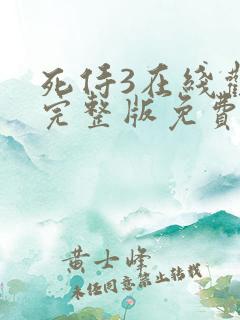 死侍3在线观
完整版免费
黄士峰
未经同意禁止转载